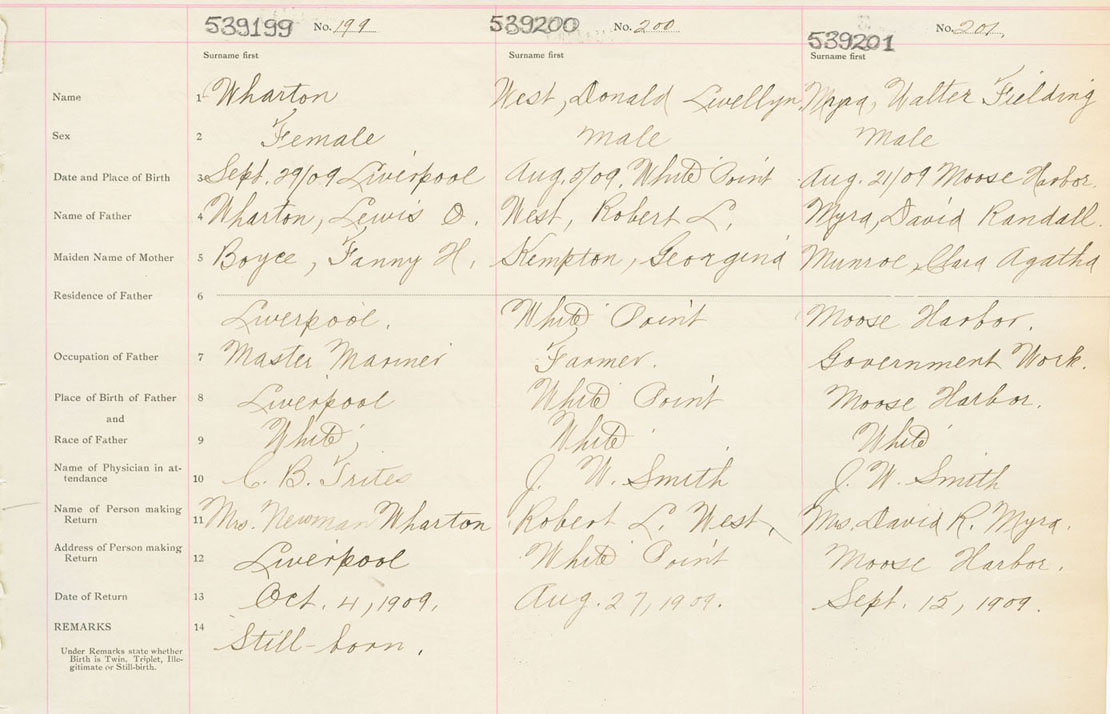 539199 No. 199 539200 No. 200 539201 No. 201
Surname first Surname first Surname first
Name 1 Wharton West, Donald Lwellyn Myra, Walter Fielding
Sex 2 Female Male Male
Date and Place of Birth 3 Sept. 29/09 Liverpool Aug. 5/09. White Point Aug. 21/09 Moose Harbor.
Name of Father 4 Wharton, Lewis O. West, Robert L. Myra, David Randall.
Maiden Name of Mother 5 Boyce, Fanny H. Kempton, Georgina Munroe, Clara Agatha
Residence of Father 6
Liverpool. White Point Moose Harbor.
Occupation of Father 7 Master Mariner Farmer. Government Work.
Place of Birth of Father 8 Liverpool White Point Moose Harbor.
and
Race of Father 9 White White White
Name of Physician in at-
tendance 10 C. B. Trites J. W. Smith J. W. Smith
Name of Person making
Return 11 Mrs. Newman Wharton Robert L West, Mrs. David R. Myra.
Address of Person making
Return 12 Liverpool White Point Moose Harbor.
Date of Return 13 Oct. 4, 1909. Aug. 27, 1909. Sept. 15, 1909.
REMARKS 14 Still-born.
Under Remarks state whether
Birth is Twin. Triplet, Ille-
gitimate or Still-birth.